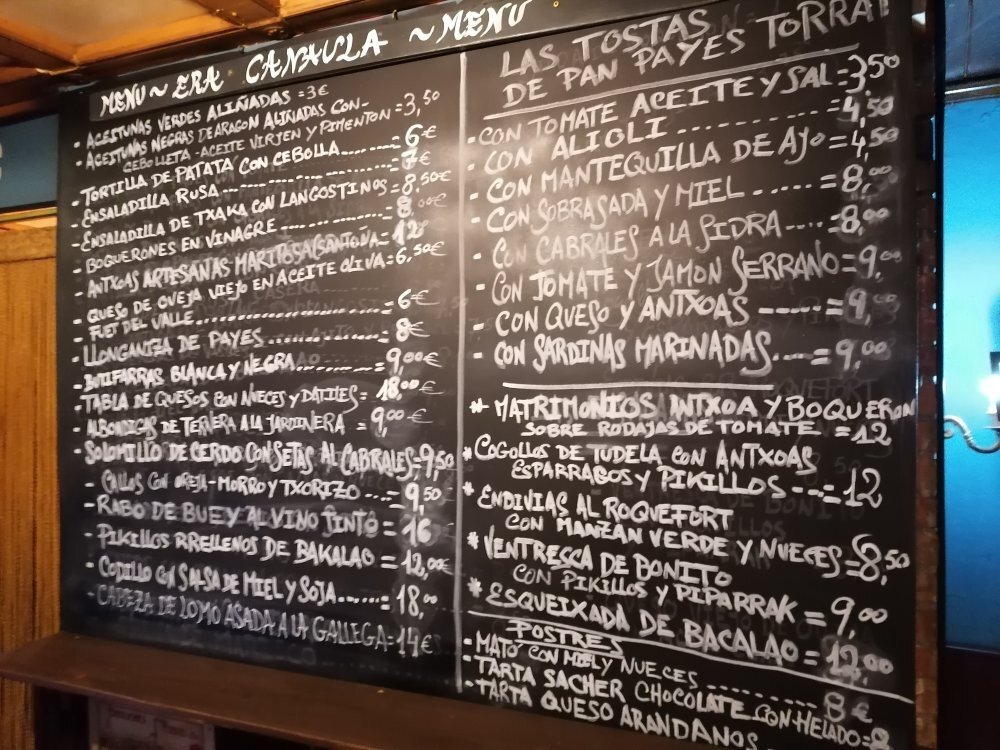 MENU ~ ERA CANAULA ~ MENU
- ACEITUNAS VERDES ALIÑADAS = 3€
- ACEITUNAS NEGRAS DE ARAGON ALIÑADAS CON-
CEBOLLETA - ACEITE VIRJEN Y PIMENTON = 3,50
- TORTILLA DE PATATA CON CEBOLLA........ = 6€
- ENSALADILLA RUSA ................ = 7€
- ENSALADILLA DE TXAKA CON LANGOSTINOS = 8,50€
- BOQUERONES EN VINAGRE ............ = 8,00€
- ANTXOAS ARTESANAS MARIPOSA (SANTOÑA = 12
- QUESO DE OVEJA VIEJO EN ACEITE OLIVA = 6,50€
- FUET DEL VALLE .................. = 6€
- LLONGANIZA DE PAYES .............. = 8€
- BUTIFARRAS BLANCA Y NEGRA ........ = 9,00€
- TABLA DE QUESOS CON NUECES Y DATILES = 18,00€
- ALBONDIGAS DE TERNERA A LA JARDINERA = 9,00€
- SOLOMILLO DE CERDO CON SETAS AL CABRALES = 9,50
- CALLOS CON OREJA - MORRO Y TXORIZO ... = 9,50€
- RABO DE BUEY AL VINO TINTO = 16€
- PIKILLOS RRELLENOS DE BAKALAO = 12,00€
- CODILLO CON SALSA DE MIEL Y SOJA ...... = 18,00
- CABEZA DE LOMO ASADA A LA GALLEGA = 14€
LAS TOSTAS
DE PAN PAYES
- CON TOMATE ACEITE Y SAL = 3,50
- CON ALIOLI .............. = 4,50
- CON MANTEQUILLA DE AJO = 4,50
- CON SOBRASADA Y MIEL ..... = 8,00
- CON CABRALES A LA SIDRA .... = 8,00
- CON TOMATE Y JAMON SERRANO = 9,00
- CON QUESO Y ANTXOAS ----- = 9,00
- CON SARDINAS MARINADAS .... = 9,00
* MATRIMONIOS ANTXOA Y BOQUERON
SOBRE RODAJAS DE TOMATE = 12
* COGOLLOS DE TUDELA CON ANTXOAS
ESPARRABOS Y PIKILLOS --- = 12
* ENDIVIAS AL ROQUEFORT
CON MANZAN VERDE Y NUECES = 8,50
* VENTRESCA DE BONITO
CON PIKILLOS Y PIPARRAK = 9,00
* ESQUEIXADA DE BACALAO = 12,00
POSTRES
- MATO CON MIEL Y NUECES ........ 8€
- TARTA SACHER CHOCOLATE CON HELADO =
- TARTA QUESO ARANDANOS